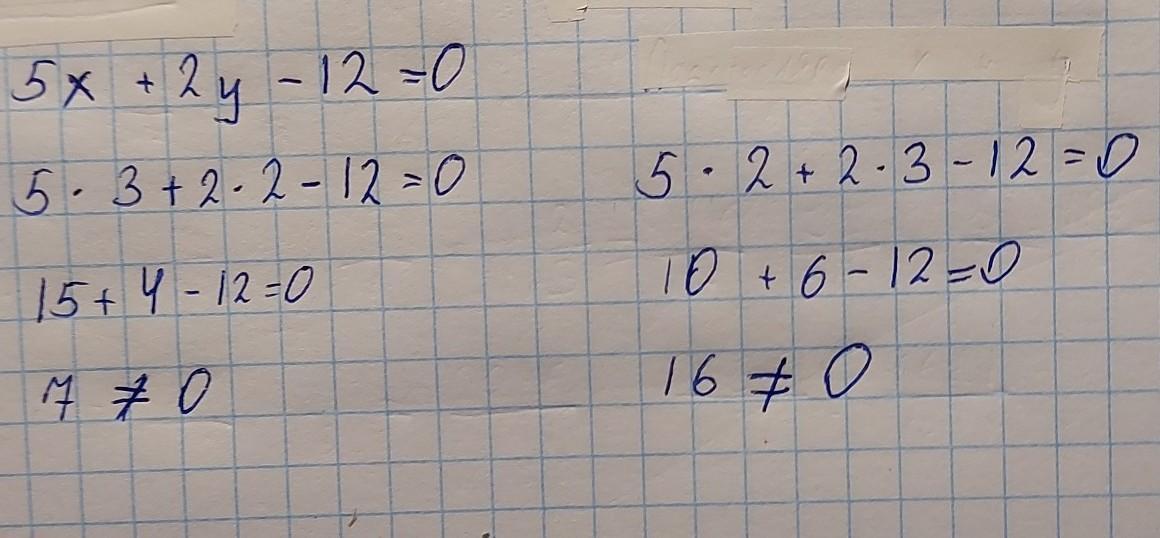 5x + 2y - 12 = 0
5 · 3 + 2 · 2 - 12 = 0
15 + 4 - 12 = 0
7 ≠ 0
5 · 2 + 2 · 3 - 12 = 0
10 + 6 - 12 = 0
16 ≠ 0